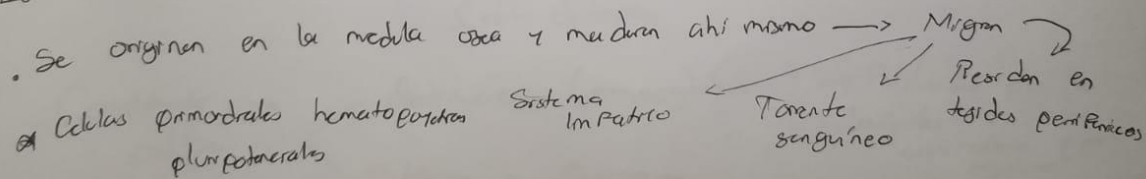 . Se originan en la medula osea y maduran ahí mismo → Migran
Residen en
tejidos perifericos
Torrente
sanguíneo
Sistema
linfatico
Celulas primordiales hematopoyeticas
pluripotenciales